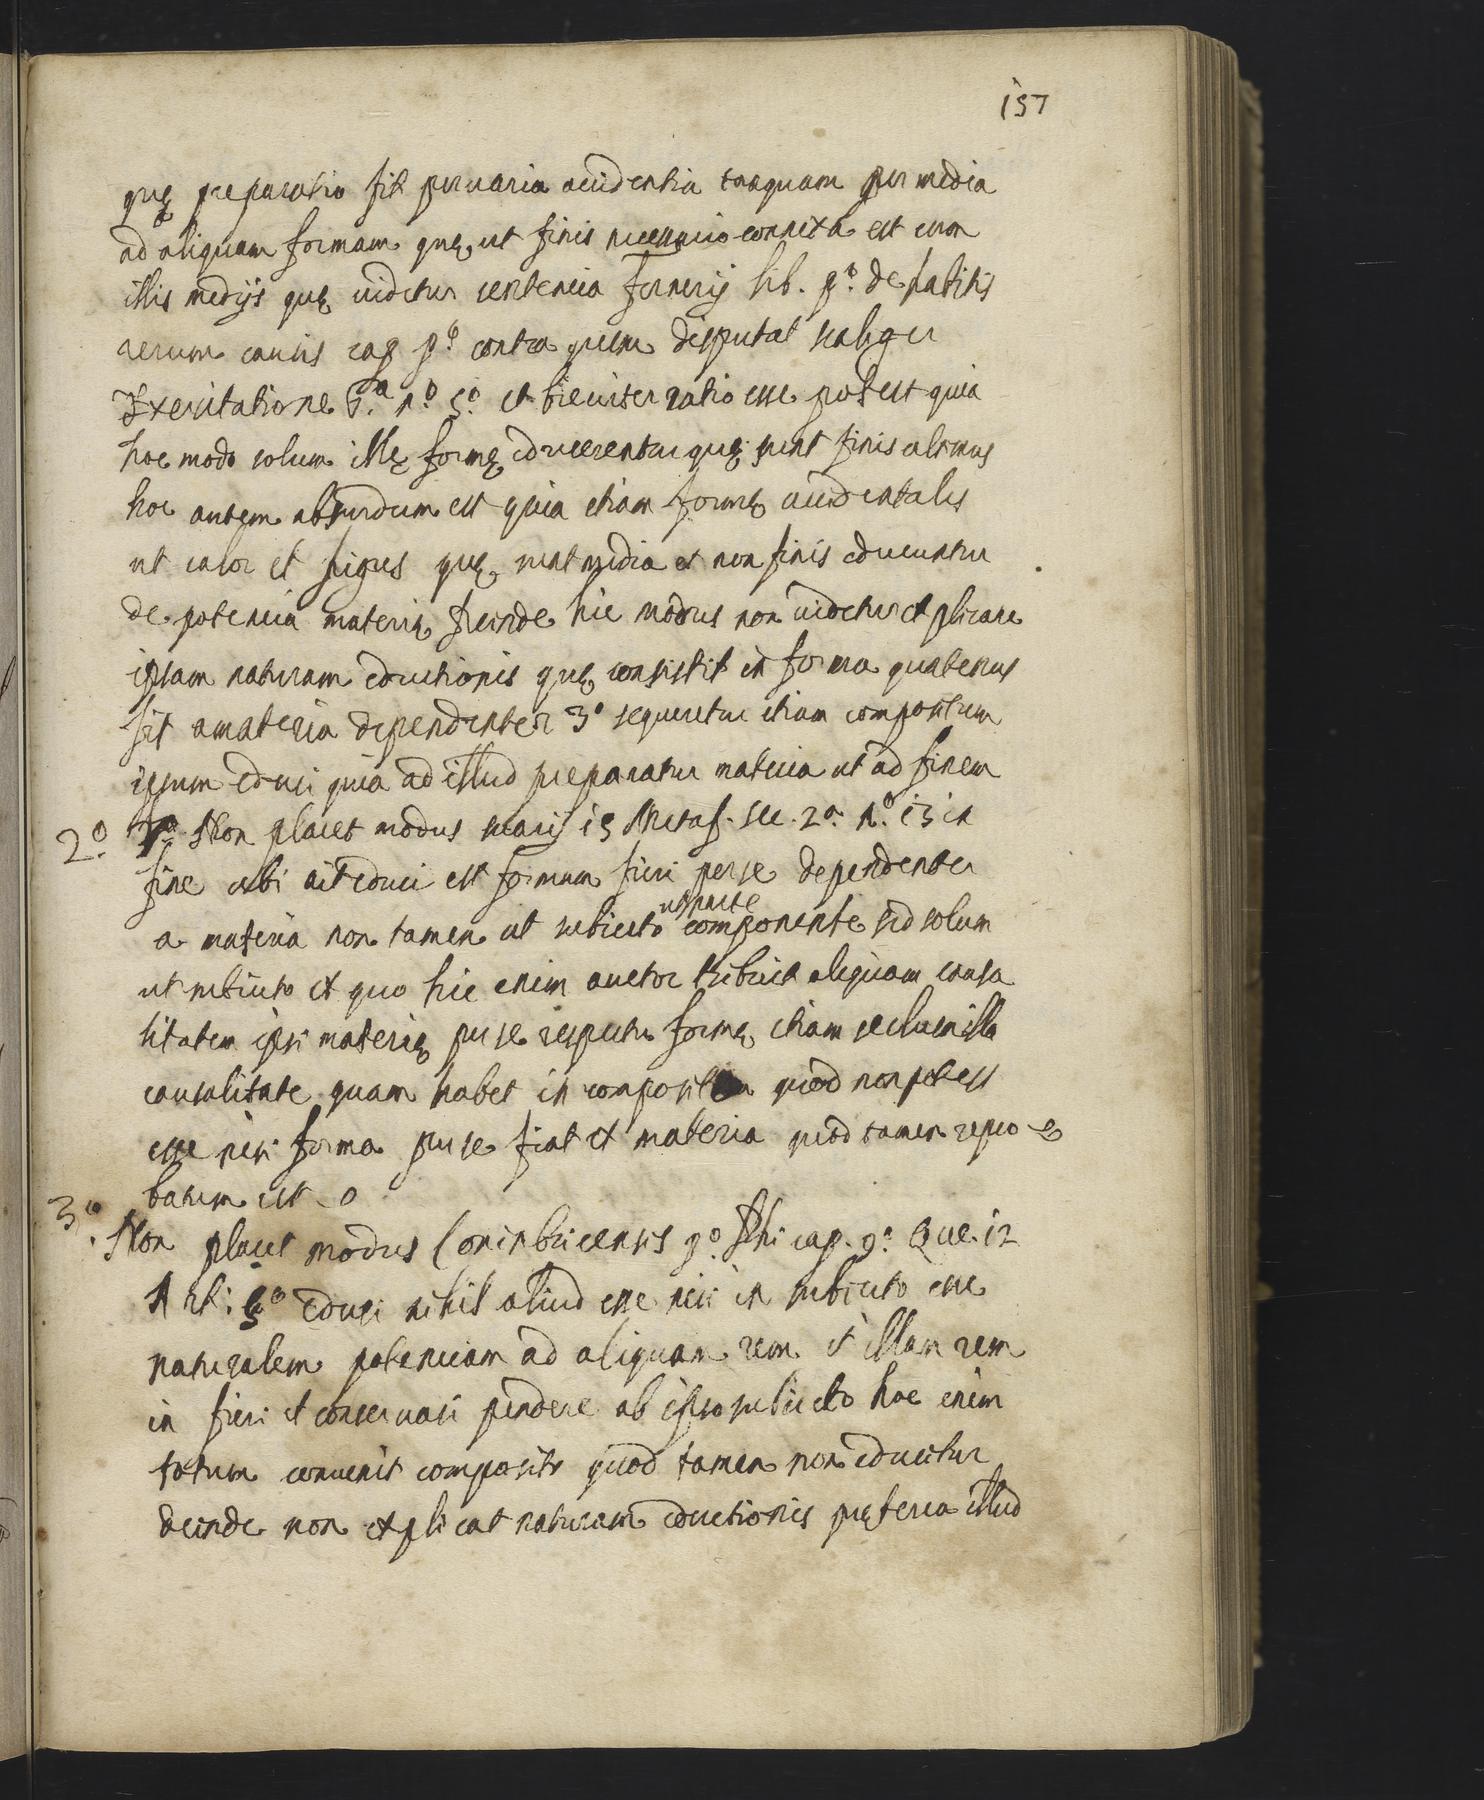 157
quę preparatio fit per uaria accidentia tanquam per media
ad aliquam formam quę ut finis necessario connexa est cum
illis medijs quę uidetur sentencia Fernerij lib. p.º de abditis
rerum causis cap p.º contra quem disputat scaliger
Exercitatione 6.ª n.º 5.º et breuiter ratio esse potest quia
hoc modo solum illę formę educerentur quę sunt finis ultimus
hoc autem absurdum est quia etiam formę accidentalis
ut calor et frigus quę sunt media et non finis educuntur
de potencia materię deinde hic modus non uidetur explicare
ipsam naturam eductionis quę consistit in forma quatenus
fit a materia dependenter 3º sequeretur etiam compositum
ipsum educi quia ad illud preparatur materia ut ad finem
2.º Non placet modus suarij 15 Metaf. sec. 2ª. n.º 15 in
fine ubi ait educi est formam fieri per se dependenter
ut parte
a materia non tamen ut subiecto componente sed solum
ut subiecto ex quo hic enim auctor tribuit aliquam causa
litatem ipsi materię per se respectu formę etiam seclusa illa
causalitate quam habet in compositum quod non potest
esse nisi forma per se fiat ex materia quod tamen repro
batum est
3.º Non placet modus Conimbricensis pº Phi cap. 9.º Que. 12
Art: 5º educi nihil aliud esse nisi in subiecto esse
naturalem potenciam ad aliquam rem et illam rem
in fieri et conseruari pendere ab ipso subiecto hoc enim
totum conuenit composito quod tamen non educitur
deinde non explicat naturam eductionis pręterea illud